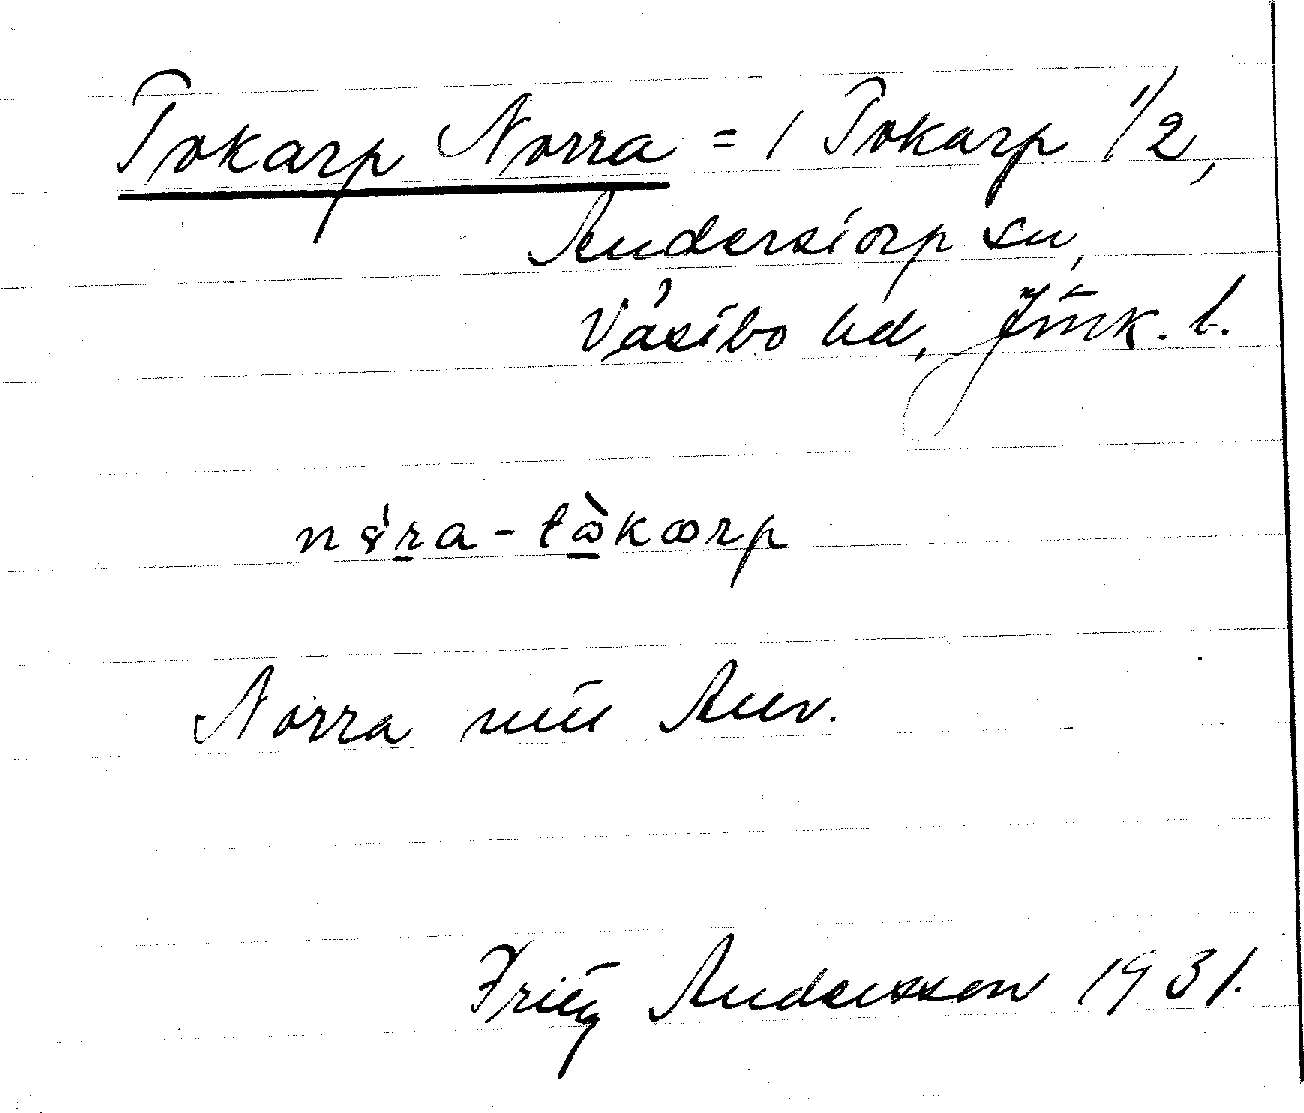 Tokarp Norra = 1 Tokarp 1/2,
Anderstorp sn,
Västbo hd, Jönk. l.
Norra
Fritz Andersson 1931.